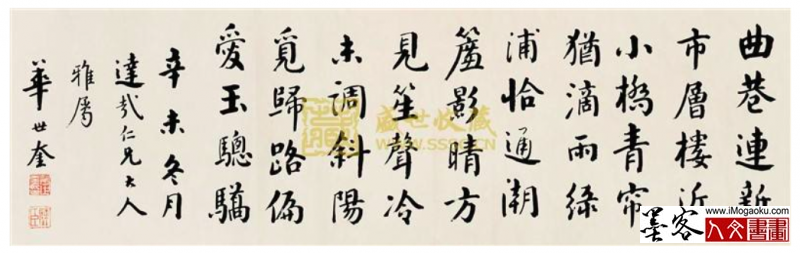 曲巷連新
市層樓近
小橋青帘
猶滴雨綠
浦恰通潮
簾影晴方
見笙聲冷
未調斜陽
覓歸路偏
愛玉驄驕
辛未冬月
達哉仁兄大人
雅屬
華世奎
盛世收藏
www.iMogaoku.com
墨客
人文書畫